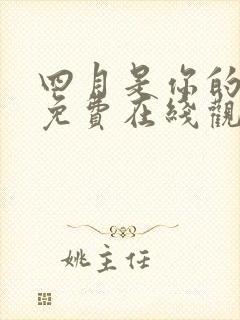 四月是你的
免費在綫觀
姚主任